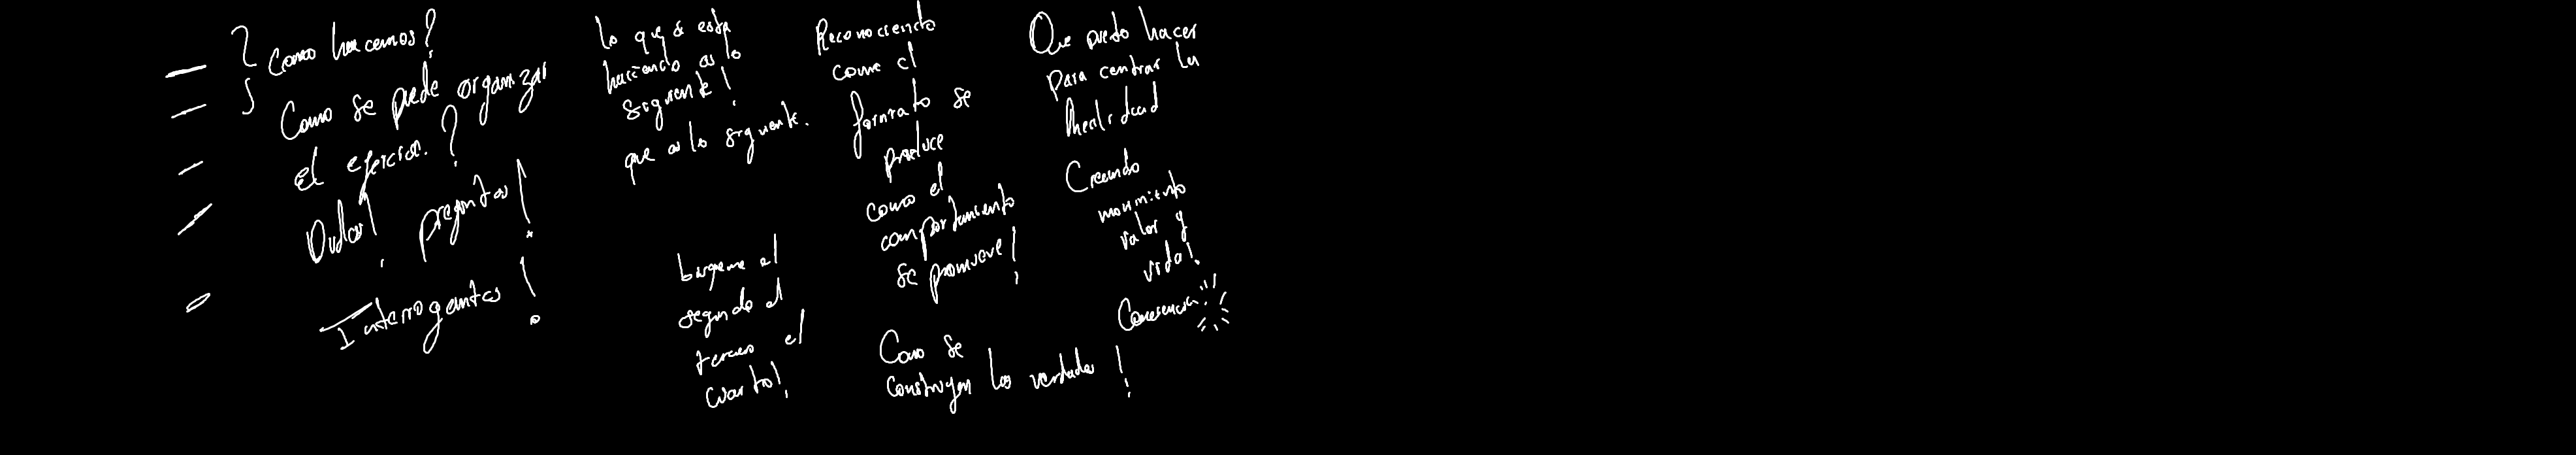 ¿Como hacemos?
Como se puede organizar
el ejercicio.?
Dudas! preguntas!
Interrogantes!
lo que se esta
haciendo es lo
siguiente!
que es lo siguiente.
el
segundo el
tercero el
cuarto!
Reconociendo
como el
formato se
produce
como el
comportamiento
se promueve!
Como se
construyen las verdades!
Que puedo hacer
Para centrar la
Realidad
Creando
movimiento
valor y
vida!
Conciencia